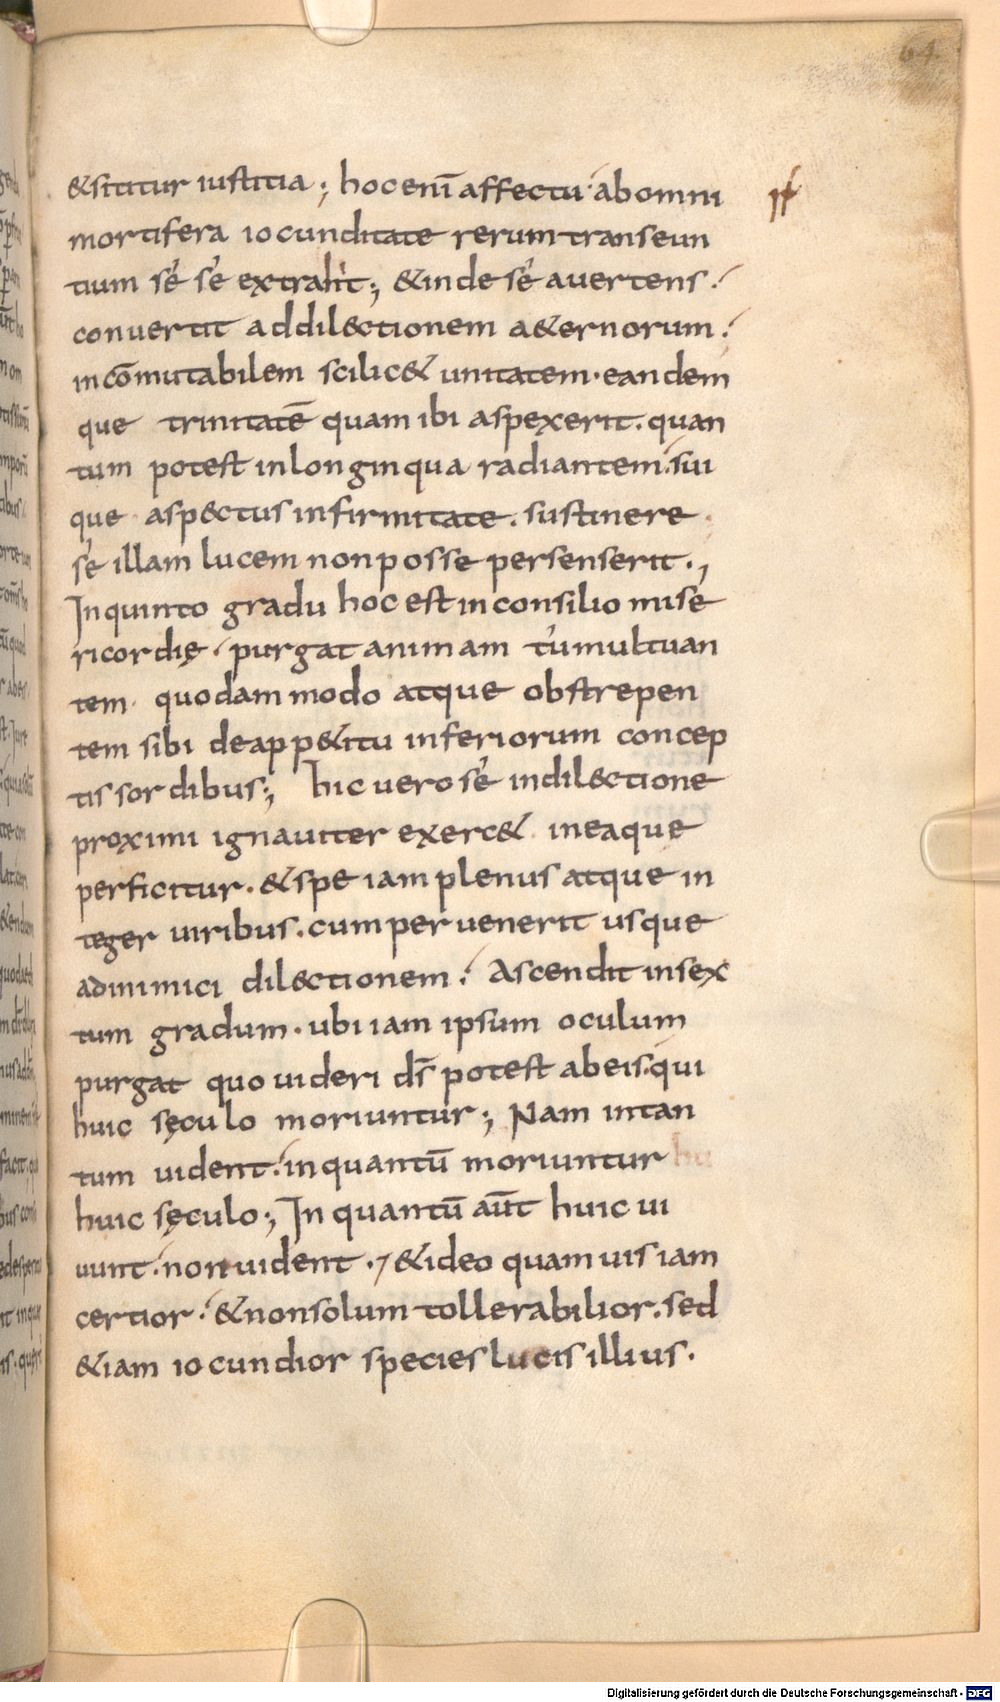 64
&sititur iustitia; hoc eni̅ affectu ab omni
mortifera iocunditate rerum transeun
tium sé sé extrahit; & inde sé auertens.
conuertit ad dil&ctionem a&ernorum.
inco̅mutabilem scilic& unitatem. eandem
que trinitate̅ quam ibi aspexerit. quan
tum potest in longinqua radiantem. sui
que asp&ctus infirmitate. sustinere
sé illam lucem non posse persenserit.,
In quinto gradu hoc est in consilio mise
ricordię. purgat animam tumultuan
tem quodam modo atque obstrepen
tem sibi de app&itu inferiorum concep
tis sordibus; hic uero sé in dil&ctione
proximi ignauiter exerc& in eaque
perficitur. & spe iam plenus atque in
teger uiribus. cum peruenerit usque
ad inimici dil&ctionem. Ascendit in sex
tum gradum. ubi iam ipsum oculum
purgat quo uideri ds̅ potest ab eis. qui
huic sęculo moriuntur; Nam in tan
tum uident. in quantu̅ moriuntur
huic sęculo; In quantu̅ aut̅ huic ui
uunt. non uident., & ideo quam uis iam
certior. & non solum tollerabilior. sed
& iam iocundior species lucis illius.
Digitalisierung gefördert durch die Deutsche Forschungsgemeinschaft - DFG